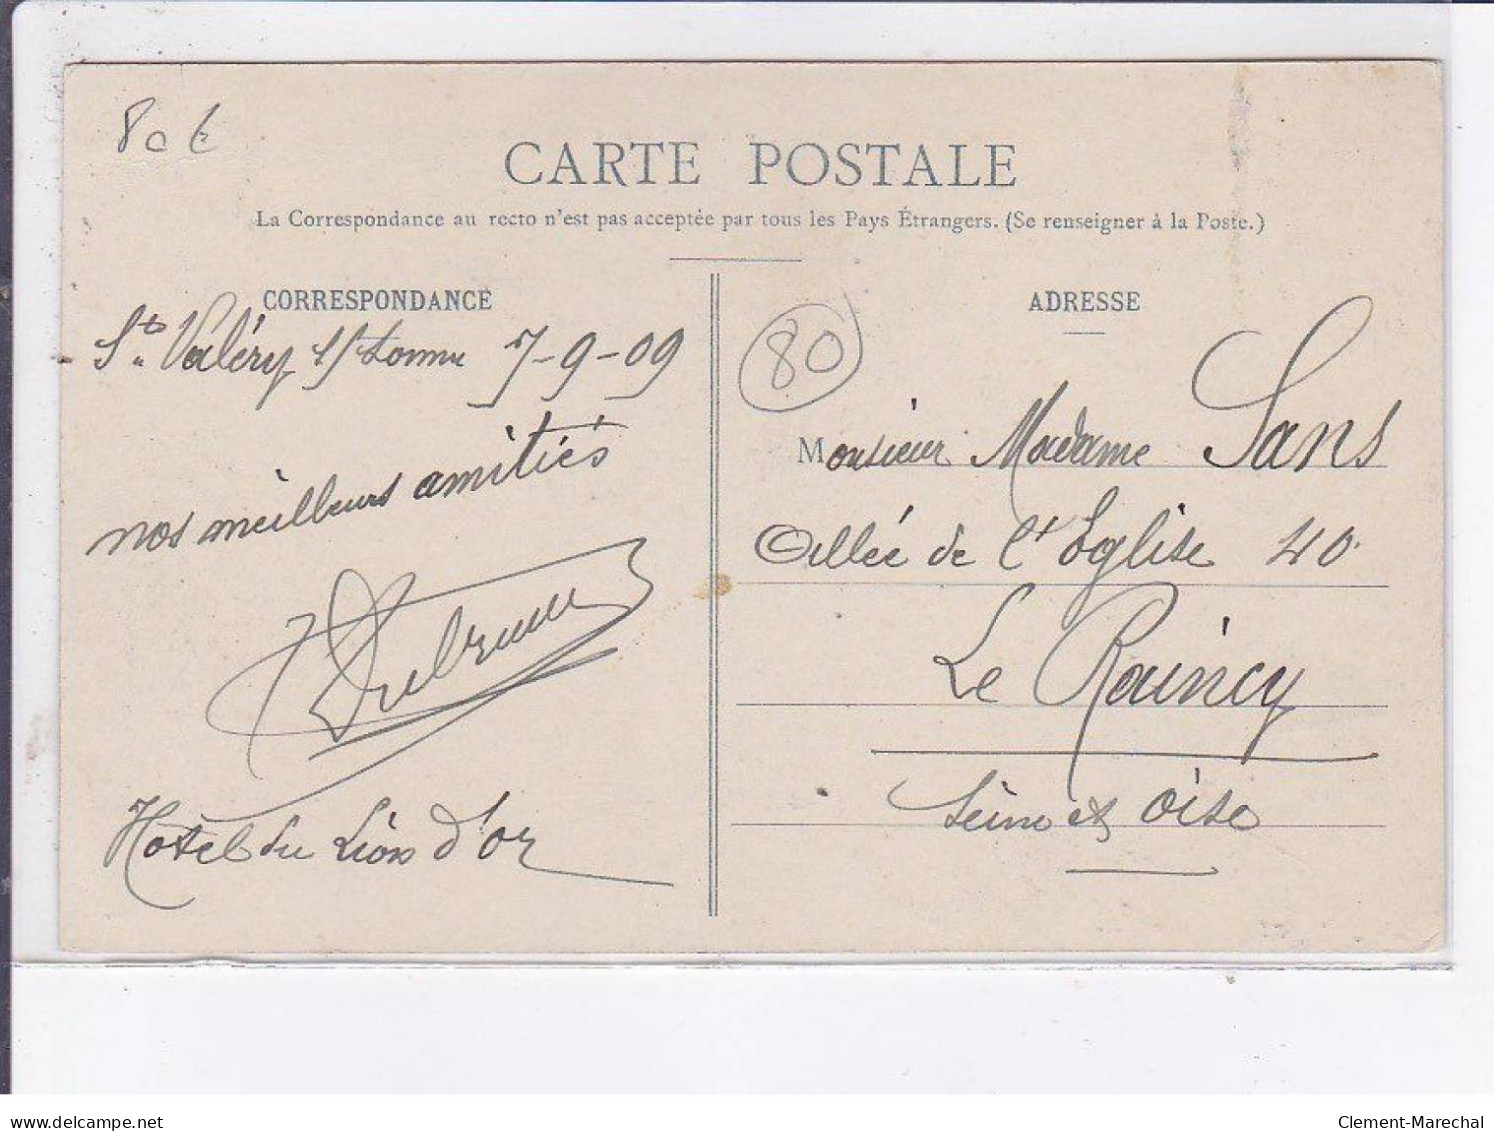 80 €
CARTE POSTALE
La Correspondance au recto n'est pas acceptée par tous les Pays Étrangers. (Se renseigner à la Poste.)
CORRESPONDANCE
St Valéry s/ Somme 7-9-09
nos meilleurs amitiés
Hotel du Lion d'or
80
ADRESSE
Monsieur Madame Sans
Allée de l'Eglise 40
Le Raincy
Seine et Oise
delcampe.net
Clement-Marechal